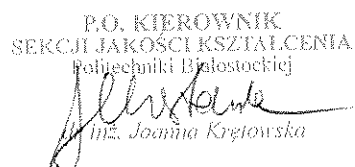 P.O. KIEROWNIK
SEKCJI JAKOŚCI KSZTAŁCENIA
Politechniki Białostockiej
dr inż. Joanna Krętowska